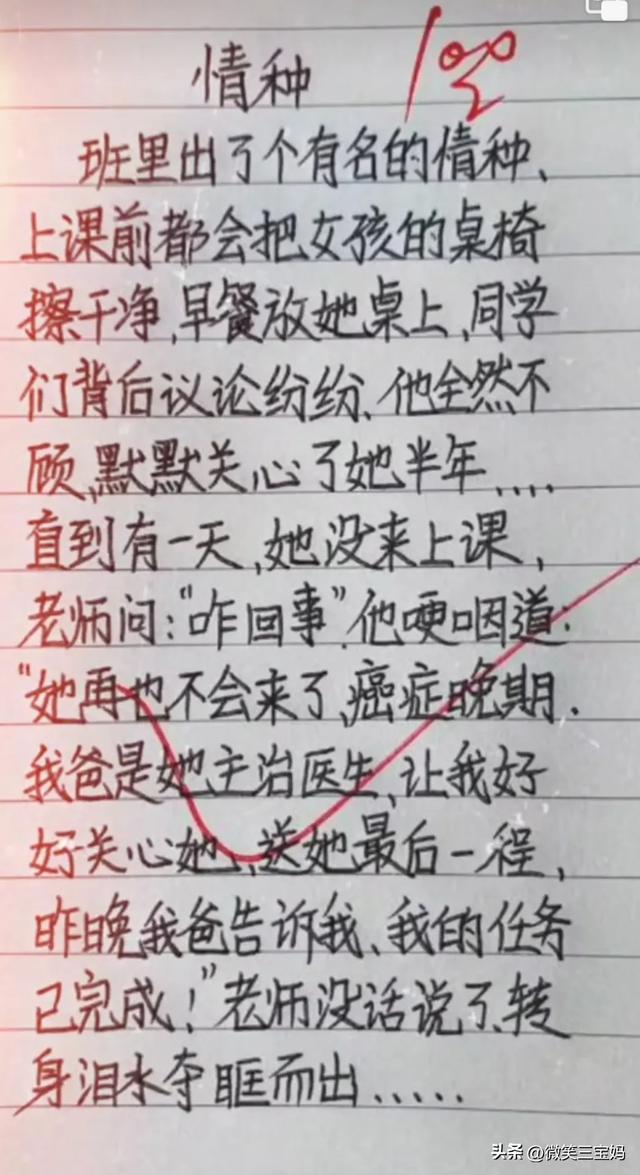 情种 100
班里出了个有名的情种、
上课前都会把女孩的桌椅
擦干净,早餐放她桌上,同学
们背后议论纷纷、他全然不
顾,默默关心了她半年....
直到有一天,她没来上课,
老师问:"咋回事",他哽咽道:
"她再也不会来了,癌症晚期.
我爸是她主治医生,让我好
好关心她,送她最后一程,
昨晚我爸告诉我、我的任务
已完成!"老师没话说了,转
身泪水夺眶而出.....
头条 @微笑三宝妈